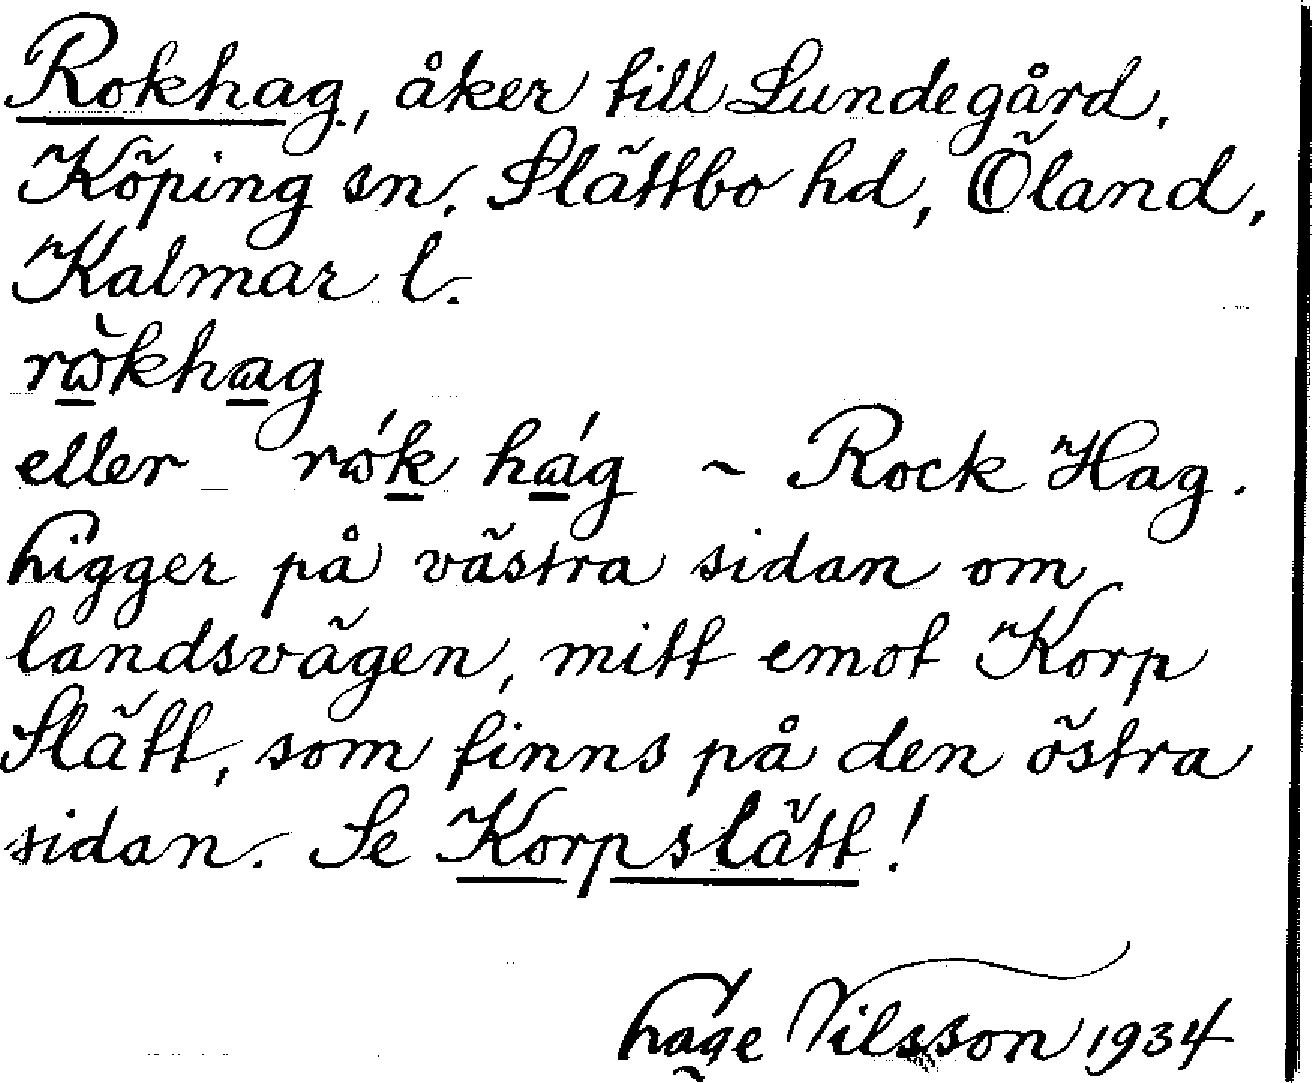 Rokhag, åker till Lundegård.
Köping sn, Slättbo hd, Öland,
Kalmar l.
rὼkhag
eller rώk hág ~ Rock Hag.
Ligger på västra sidan om
landsvägen, mitt emot Korp
Slätt, som finns på den östra
sidan. Se Korpslätt!
Nilsson 1934